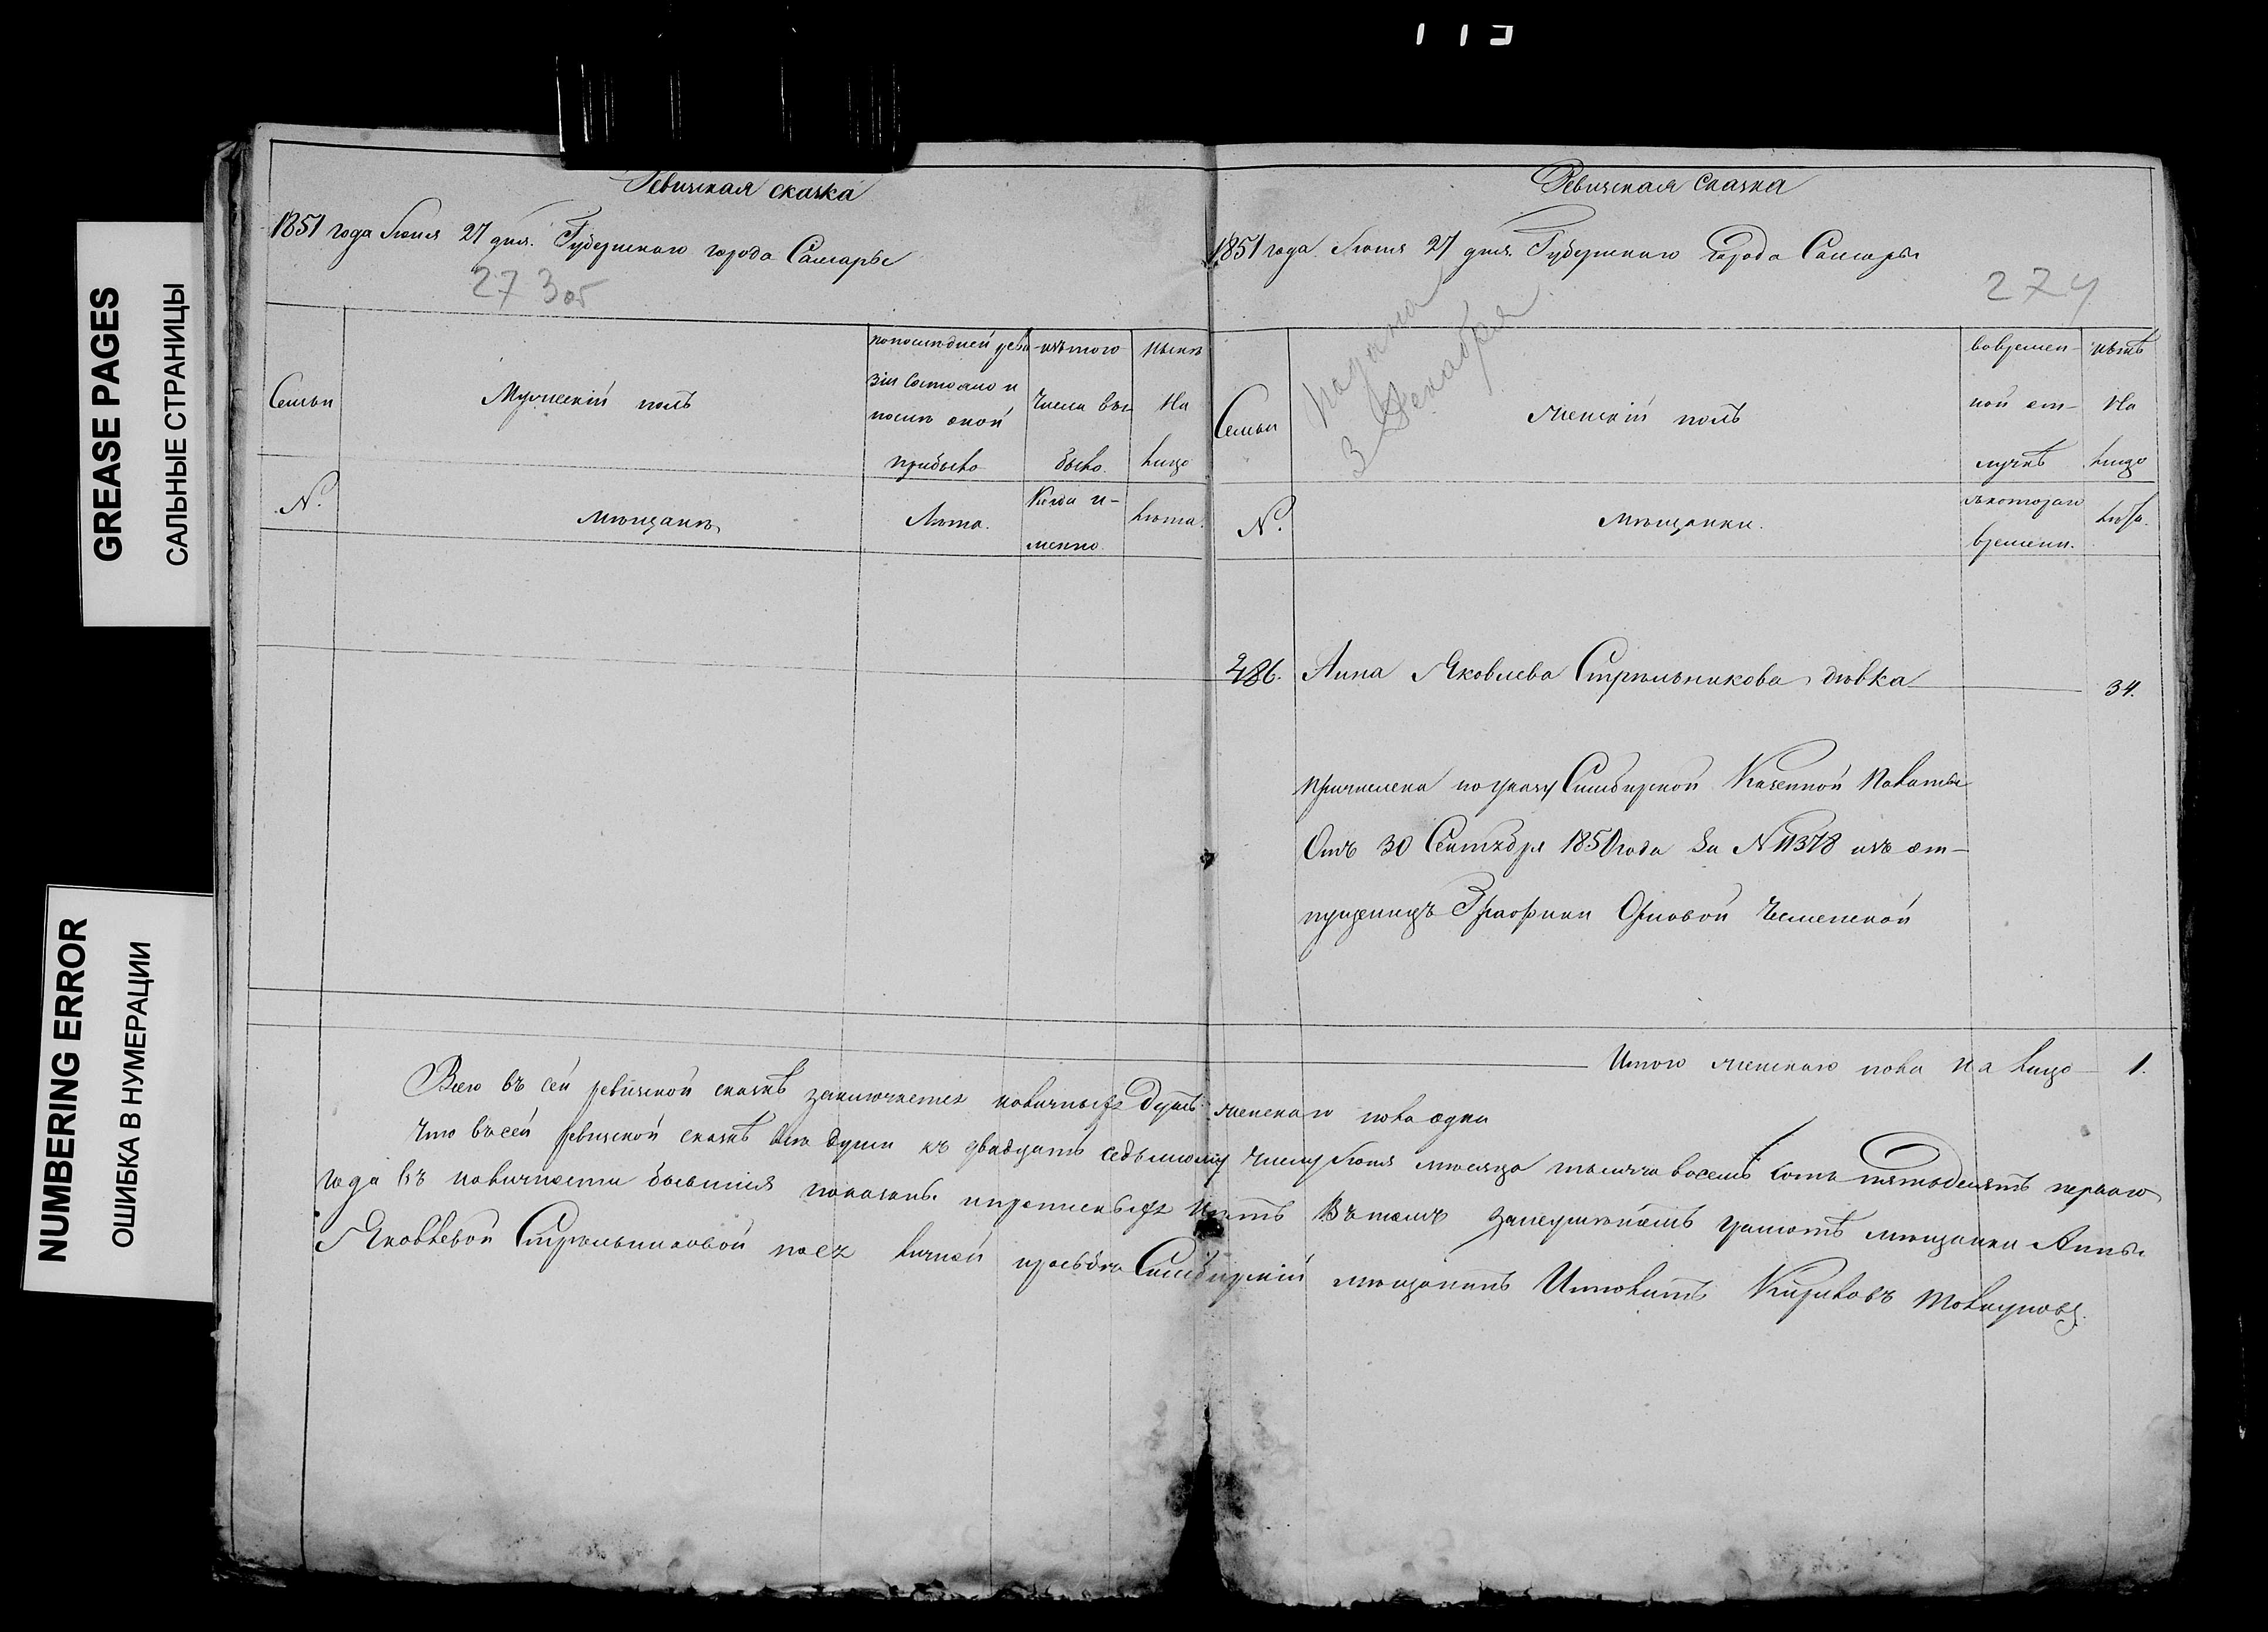 113
GREASE PAGES
САЛЬНЫЕ СТРАНИЦЫ
NUMBERING ERROR
ОШИБКА В НУМЕРАЦИИ
Ревизская сказка
1851 года Июня 27 дня. Губернскаго города Самары
273об
Семьи
Мужескій полъ
по последней реви-
зіи состояло и
после оной
прибыло
изъ того
числа вы-
было.
ныне
на
лицо
№.
мещане
Лета.
Когда и-
менно.
лета.
Ревизская Сказка
1851 года Июня 27 дня. Губернскаго Города Самары
274
3 Декабря
Семьи
Женскій полъ
во времен-
ной от-
лучкѣ
нынѣ
на
лицо
№.
мещанки.
съ котораго
времени.
лѣта.
486. Анна Яковлева Стрельникова девка 34.
причислена по указу Симбирской Казенной Палаты
Отъ 30 Сентября 1850 года За № 11378 изъ от-
пущеницъ Графини Орловой Чесменской
Итого женскаго пола на лицо 1.
Всего въ сей ревизской сказкѣ заключается наличныхъ Душъ женскаго пола одна
Что въ сей ревизской сказкѣ все души къ двадцать седьмому числу Июня месяца тысяча восемь сотъ пятьдесятъ перваго
года въ наличности бывшия показаны и прописныхъ нѣтъ Въ томъ за неумениемъ грамотѣ мещанки Анны
Яковлевой Стрельниковой по ея личной прозьбе Симбирскій мещанинъ Кириловъ